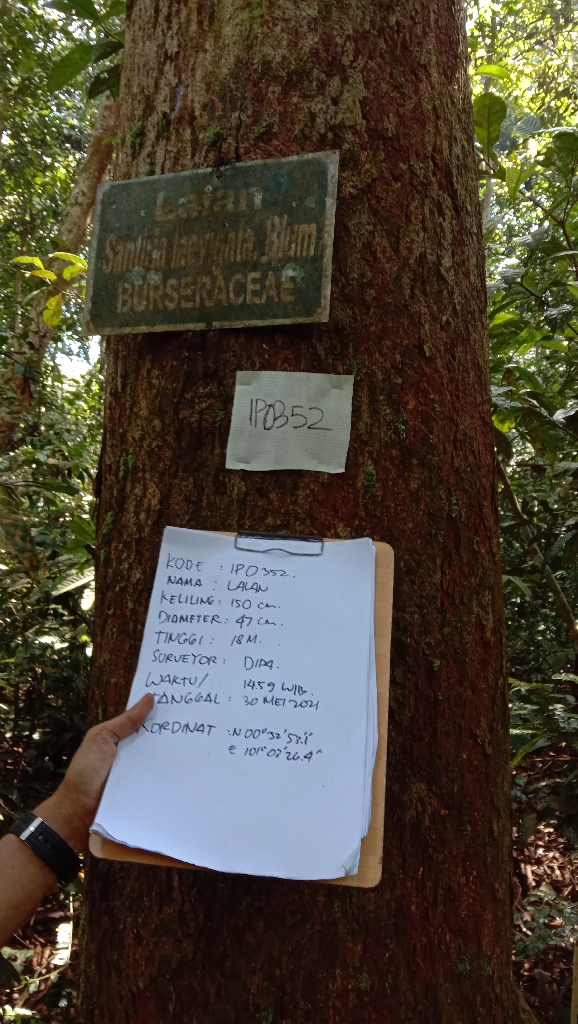 Lalan
Santiria laevigata, Blum
BURSERACEAE
IPO352
KODE : IPO352.
NAMA : LALAN
KELILING : 150 cm.
DIAMETER : 47 cm.
TINGGI : 18 M.
SURVEYOR : DIPA.
WAKTU/ 1459 WIB.
TANGGAL : 30 MEI 2021
KORDINAT : N 00°32'53.1"
E 101°03'26.4"